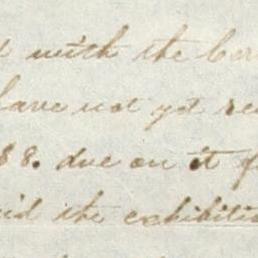 with the
have not yet
$8. due on it
the exhibition